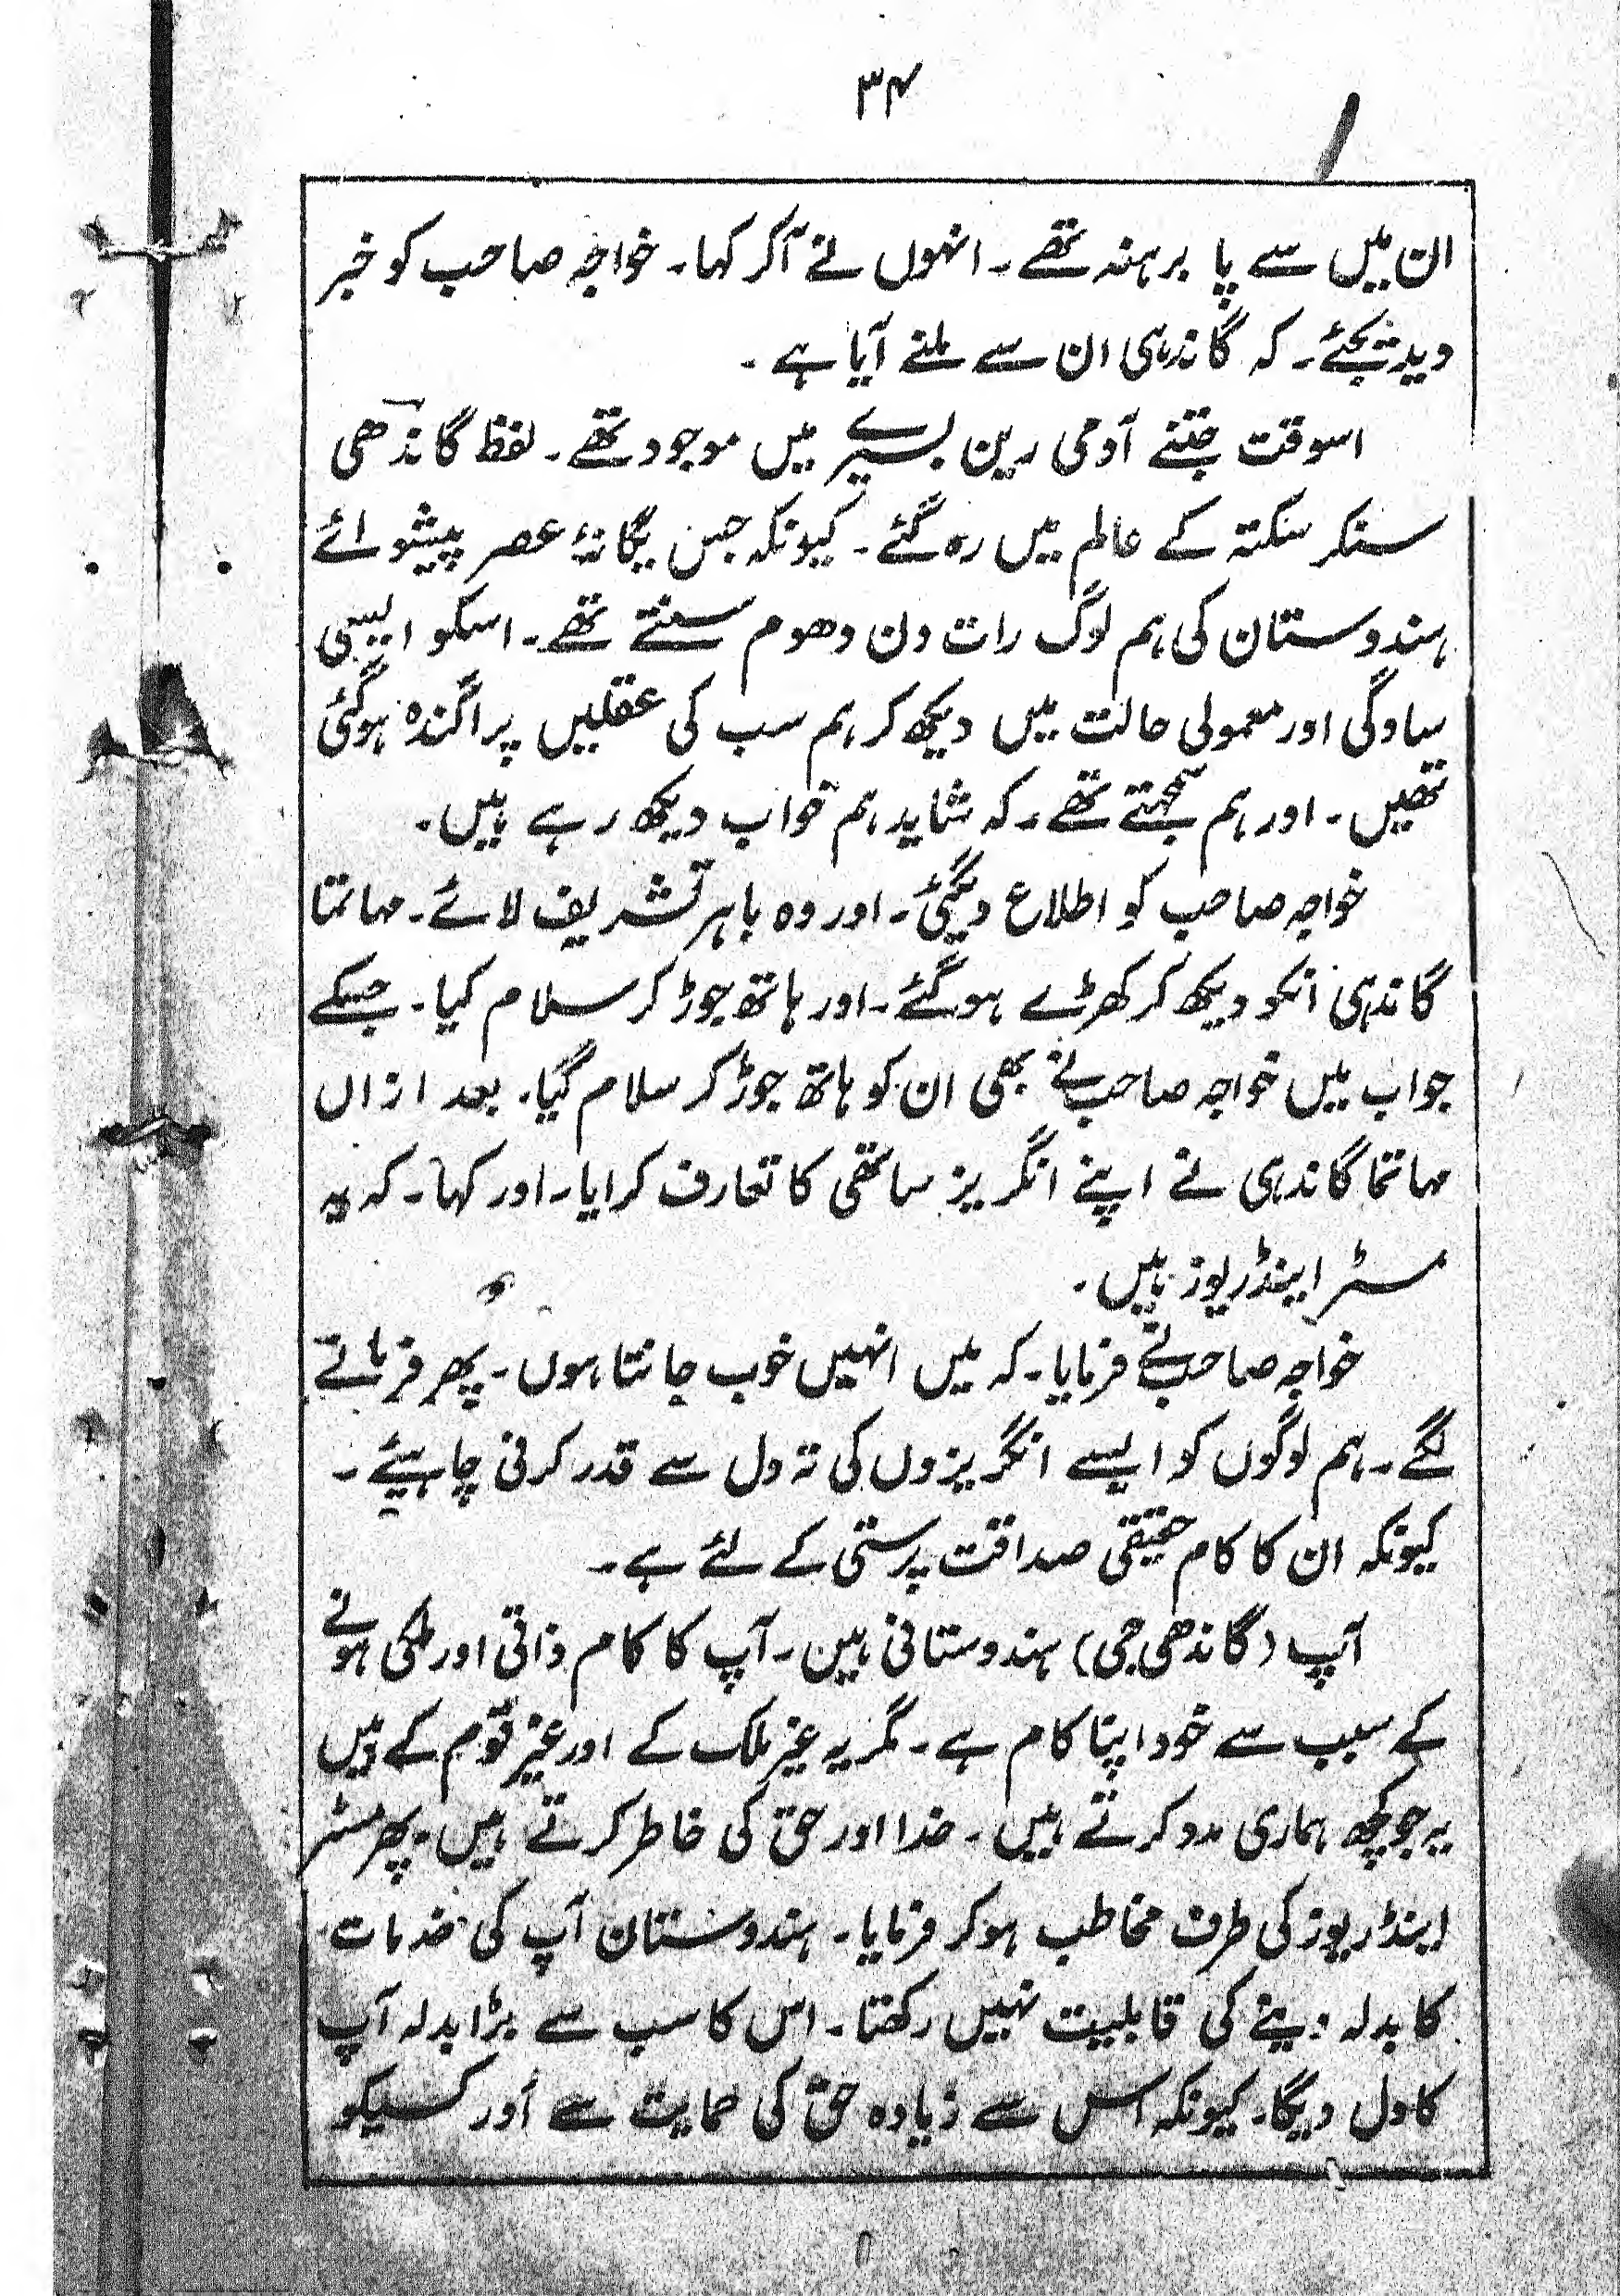 ۳۴
ان میں سے پا برہنہ تھے۔ انہوں نے آکر کہا۔ خواجہ صاحب کو خبر
دیدیجئے۔ کہ گاندہی ان سے ملنے آیا ہے۔
اسوقت جتنے آدمی رین بسیرے میں موجود تھے۔ لفظ گاندھی
سنکر سکتہ کے عالم میں رہ گئے۔ کیونکہ جس یگانۂ عصر پیشوائے
ہندوستان کی ہم لوگ رات دن دھوم سنتے تھے۔ اسکو ایسی
سادگی اور معمولی حالت میں دیکھ کر ہم سب کی عقلیں پراگندہ ہوگئی
تھیں۔ اور ہم سمجھتے تھے۔ کہ شاید ہم خواب دیکھ رہے ہیں۔
خواجہ صاحب کو اطلاع دیگئی۔ اور وہ باہر تشریف لائے۔ مہاتما
گاندہی انکو دیکھ کر کھڑے ہوگئے۔ اور ہاتھ جوڑ کر سلام کیا۔ جسکے
جواب میں خواجہ صاحب نے بھی ان کو ہاتھ جوڑ کر سلام کیا۔ بعد ازاں
مہاتما گاندہی نے اپنے انگریز ساتھی کا تعارف کرایا۔ اور کہا۔ کہ یہ
مسٹر اینڈریوز ہیں۔
خواجہ صاحب نے فرمایا۔ کہ میں انہیں خوب جانتا ہوں۔ پھر فرمانے
لگے۔ ہم لوگوں کو ایسے انگریزوں کی تہ دل سے قدر کرنی چاہیئے۔
کیونکہ ان کا کام حقیقی صداقت پرستی کے لئے ہے۔
آپ (گاندھی جی) ہندوستانی ہین۔ آپ کا کام ذاتی اور ملکی ہونے
کے سبب سے خود اپنا کام ہے۔ مگر یہ غیر ملک کے اور غیر قوم کے ہیں
یہ جو کچھ ہماری مدد کرتے ہیں۔ خدا اور حق کی خاطر کرتے ہیں۔ پھر مسٹر
اینڈریوز کی طرف مخاطب ہو کر فرمایا۔ ہندوستان آپ کی خدمات
کا بدلہ دینے کی قابلیت نہیں رکھتا۔ اس کا سب سے بڑا بدلہ آپ
کا دل دیگا۔ کیونکہ اس سے زیادہ حق کی حمایت سے اور کسیکو